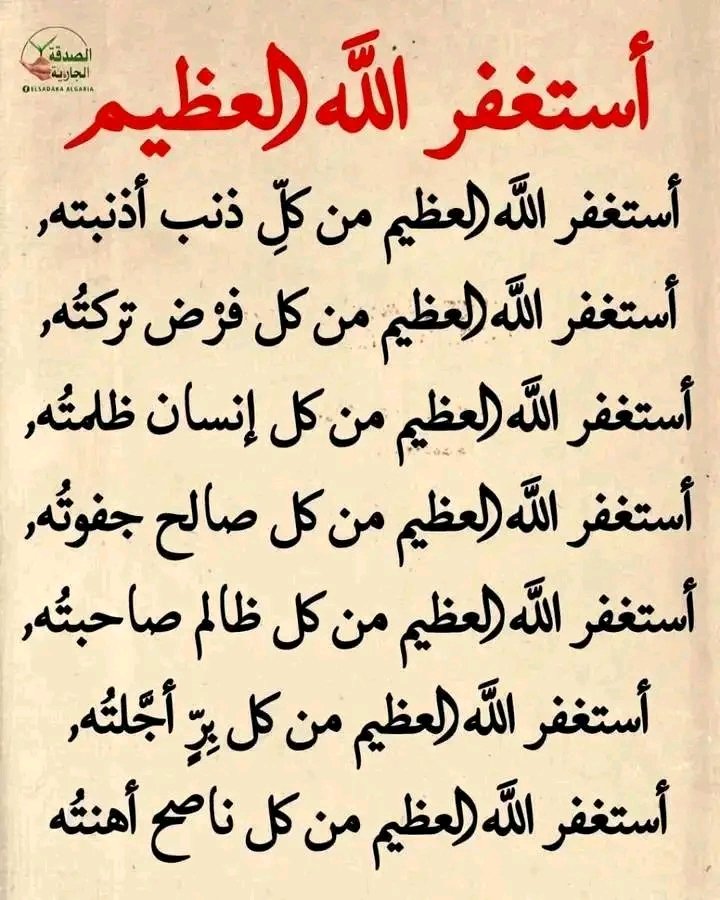 الصدقة
الجارية
ELSADAKA ALGARIA
أستغفر اللَّه العظيم
أستغفر اللَّه العظيم من كلِّ ذنب أذنبته,
أستغفر اللَّه العظيم من كل فرْض تركتُه,
أستغفر اللَّه العظيم من كل إنسان ظلمتُه,
أستغفر اللَّه العظيم من كل صالح جفوتُه,
أستغفر اللَّه العظيم من كل ظالم صاحبتُه,
أستغفر اللَّه العظيم من كل بِرٍّ أجَّلتُه,
أستغفر اللَّه العظيم من كل ناصح أهنتُه